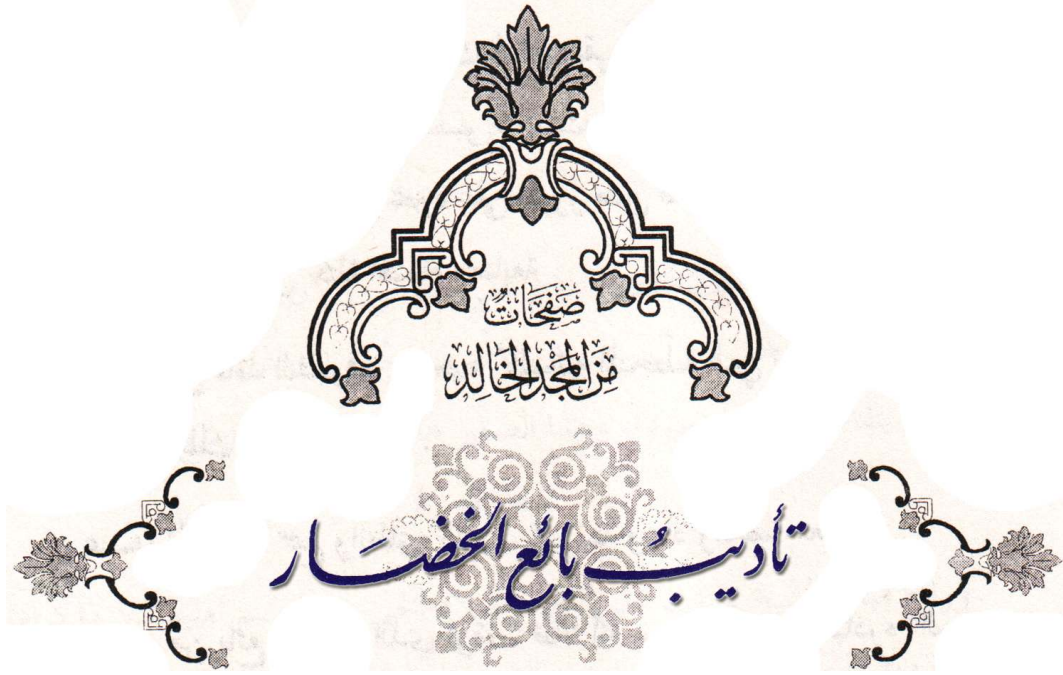 صَفَحَاتٌ
مِنَ المَجْدِ الخَالِدِ
تأديبُ بائع الخضَار